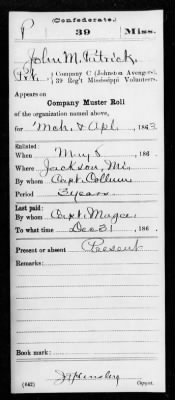 (Confederate.)
P 39 Miss.
John M. Patrick
Pvt., Company C (Johnston Avengers),
39 Reg't Mississippi Volunteers.
Appears on
Company Muster Roll
of the organization named above,
for Mch. & Apl., 1863
Enlisted:
When May 8, 186 .
Where Jackson, Mi.
By whom Capt. Collum
Period 3 years
Last paid:
By whom Capt. Magee
To what time Dec 31, 186 .
Present or absent Present
Remarks:
Book mark:
(642) Copyist.